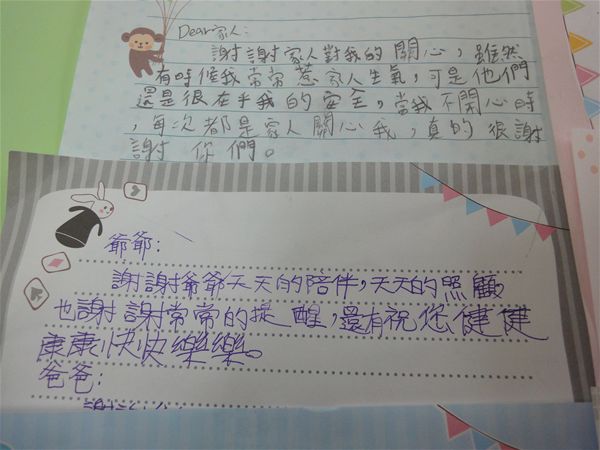 Dear家人:
謝謝家人對我的關心，雖然
有時候我常常惹家人生氣，可是他們
還是很在乎我的安全，當我不開心時
，每次都是家人關心我，真的很謝
謝你們。
爺爺:
謝謝爺爺天天的陪伴，天天的照顧
也謝謝常常的提醒，還有祝您健健
康康，快快樂樂。
爸爸: